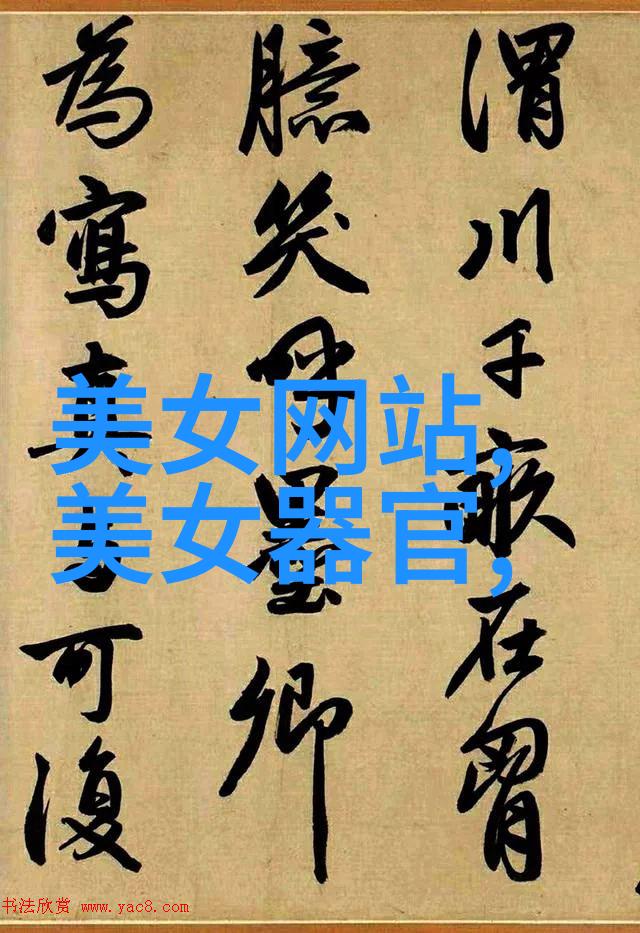 渭川千畝在胷
臆笑呼墨卿
為寫真可復
美女网站,
美女器官,
书法欣赏 www.yac8.com